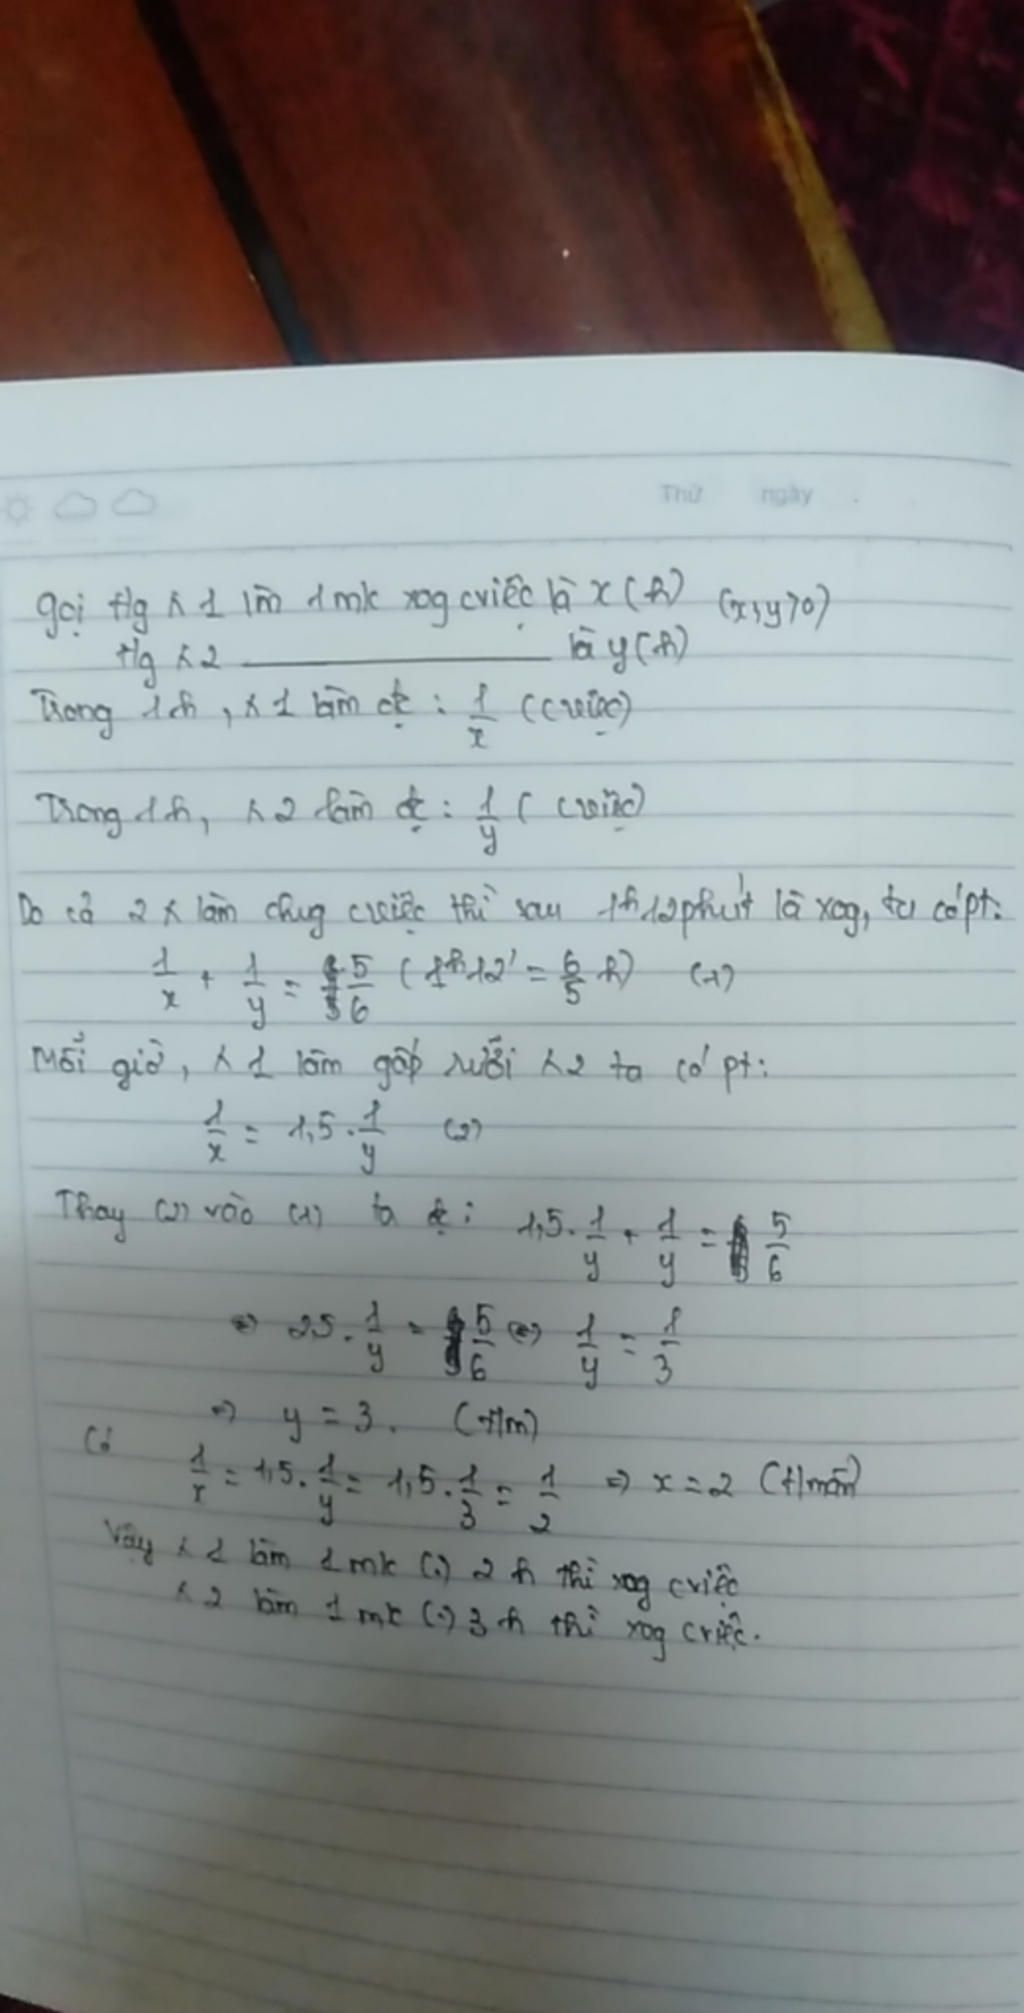 Thứ ngày
gọi t/g ^ 1 lm 1 mk xog cviệc là x (h) (x,y>0)
t/g ^ 2 ———— là y (h)
Trong 1h, ^ 1 làm đc : 1/x (cviệc)
Trong 1h, ^ 2 làm đc : 1/y (cviệc)
Do cả 2 ^ làm chug cviệc thì sau 1h12phút là xog, ta có pt:
1/x + 1/y = 5/6 (1h12' = 6/5 h) (1)
Mỗi giờ, ^ 1 làm gấp rưỡi ^ 2 ta có pt:
1/x = 1,5 . 1/y (2)
Thay (2) vào (1) ta đc : 1,5 . 1/y + 1/y = 5/6
⇔ 25 . 1/y = 5/6 ⇔ 1/y = 1/3
⇒ y = 3. (t/m)
Có 1/x = 1,5 . 1/y = 1,5 . 1/3 = 1/2 ⇒ x = 2 (t/mãn)
Vậy ^ 1 làm 1 mk (.) 2 h thì xog cviệc
^ 2 làm 1 mk (.) 3 h thì xog cviệc.